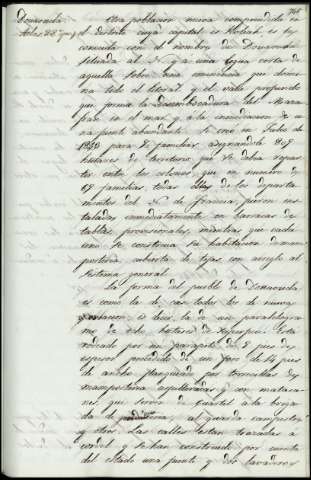 Douaouda.
Otra poblacion nueva comprendida en
el distrito cuya capital es Koleah, es la
conocida con el nombre de Douaouda
situada al N. y a una legua corta de
aquella sobre una eminencia que domi-
na todo el litoral y el valle profundo
que forma la desembocadura del Maza-
fran en el mar, y a la inmediacion de u-
na fuente abundante. Se creó en Julio de
1843 para 70 familias, asignandole
hectares de territorio que se debia repar-
tir entre los colonos, que en numero de
17 familias, todas ellas de los departa-
mentos del N. de Francia, fueron ins-
taladas inmediatamente en barracas de
tablas provisionales, mientras que cada
uno se construia su habitacion de mam-
posteria cubierta de tejas con arreglo al
sistema general.
La forma del pueblo de Douaouda
es como la de casi todos los de nueva
creacion, es decir, la de un paralelogra-
mo de ocho hectares de superficie. Está
rodeado por un parapeto de 2 pies de
espesor precedido de un foso de 14 pies
de ancho, flanqueado por torrecillas de
mamposteria aspilleradas y con mataca-
nes, que sirven de cuartel a la briga-
da de gendarmeria, al guarda campestre
y otros. Las calles estan trazadas a
cordel y se han construido por cuenta
del Estado una fuente y dos lavaderos